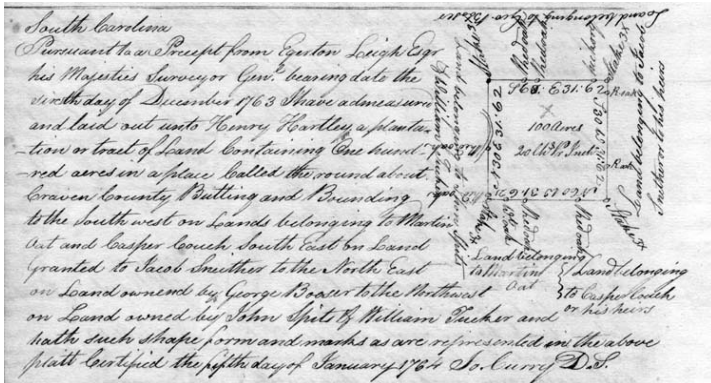 South Carolina
Pursuant to a Precept from Egerton Leigh Esqr
his Majesties Surveyor Genl. bearing date the
sixth day of December 1763 I have admeasured
and laid out unto Henry Hartley, a planta-
-tion or tract of Land Containing One hund-
-red acres in a place Called the round about
Craven County Butting and Bounding
to the South west on Lands belonging to Martin
Oat and Casper Couch South East on Land
Granted to Jacob Sneither to the North East
on Land ownend by George Booser to the Northwest
on Land owned by John Spits & William Tucker and
hath such shape form and marks as are represented in the above
platt Certified the fifth day of January 1764 Jo. Curry D.S.
Land belonging to Geo Booser
Land belonging to John Spits
& William Tucker
S 60 E 31.62
100 Acres
20 Ch
N 30 E 31.62
S 30 W 31.62
N 60 W 31.62
R oak
R oak
Stake 3x
Stake 3x
Land belonging to Jacob
Sneither or to his heirs
Land belonging
to Martin
Oat
Land belonging
to Casper Couch
or his heirs